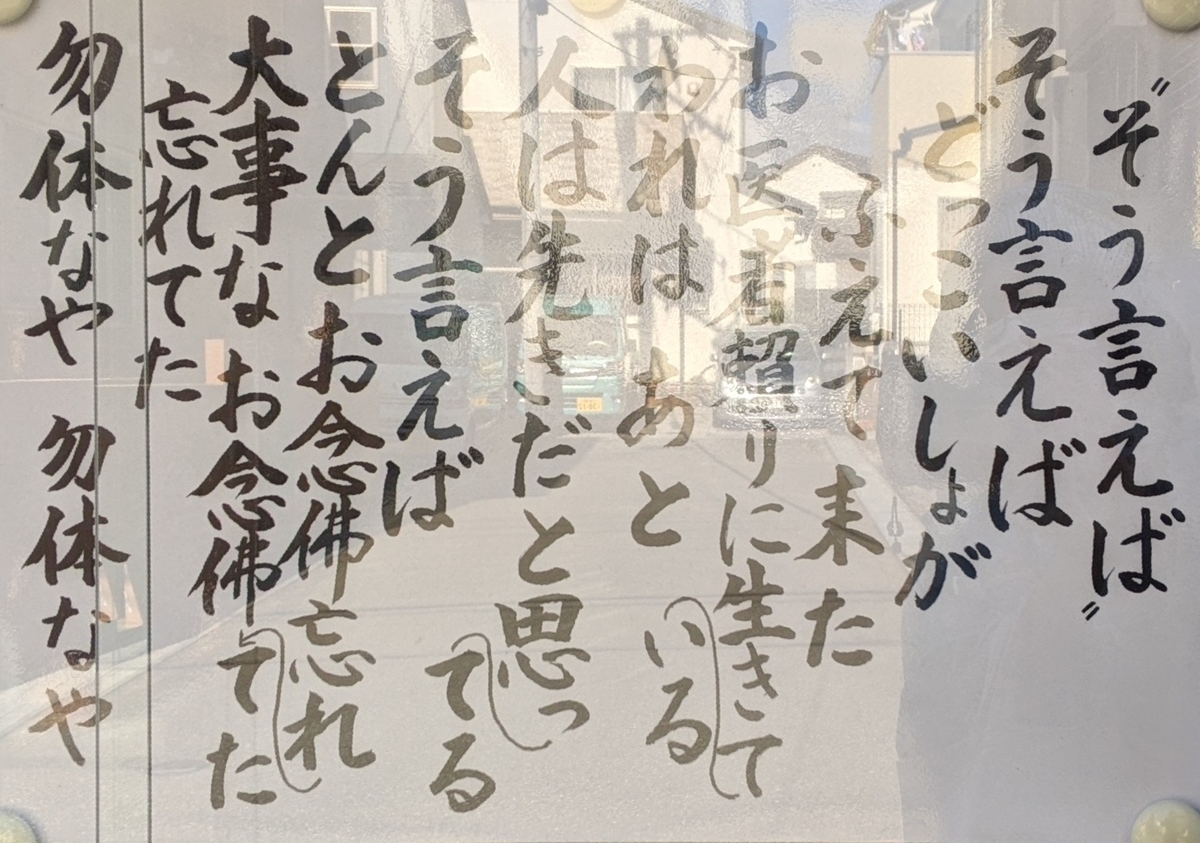 〝そう言えば〟
そう言えば
どっこいしょが
ふえて来た
お医者頼りに生きて
いる
われは あと
人は先きだと思っ
てる
そう言えば
とんとお念佛忘れ
てた
大事な お念佛
忘れてた
勿体なや 勿体なや